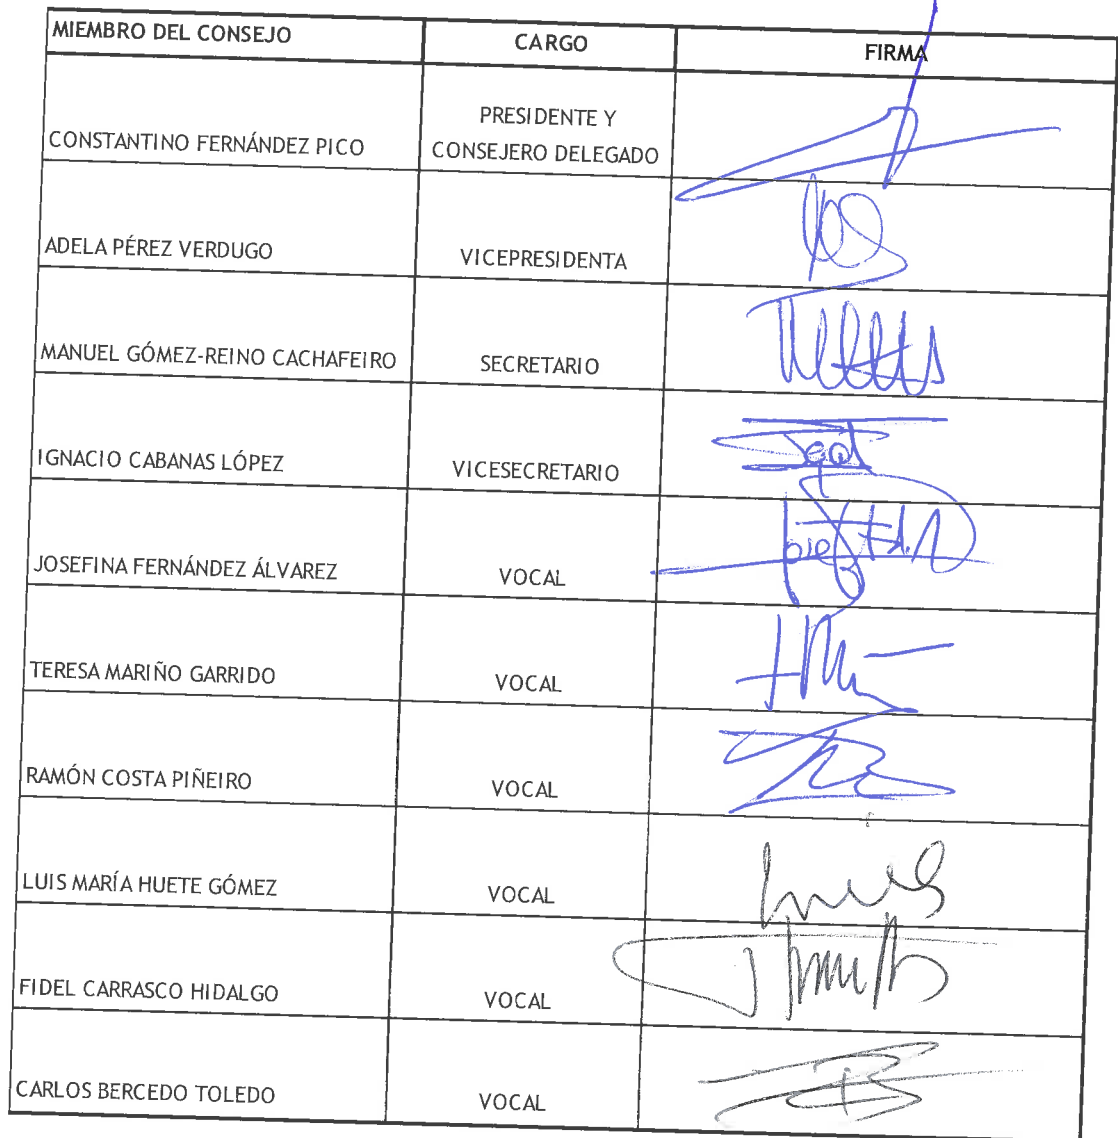 MIEMBRO DEL CONSEJO CARGO FIRMA
CONSTANTINO FERNÁNDEZ PICO PRESIDENTE Y
CONSEJERO DELEGADO
ADELA PÉREZ VERDUGO VICEPRESIDENTA
MANUEL GÓMEZ-REINO CACHAFEIRO SECRETARIO
IGNACIO CABANAS LÓPEZ VICESECRETARIO
JOSEFINA FERNÁNDEZ ÁLVAREZ VOCAL
TERESA MARIÑO GARRIDO VOCAL
RAMÓN COSTA PIÑEIRO VOCAL
LUIS MARÍA HUETE GÓMEZ VOCAL
FIDEL CARRASCO HIDALGO VOCAL
CARLOS BERCEDO TOLEDO VOCAL